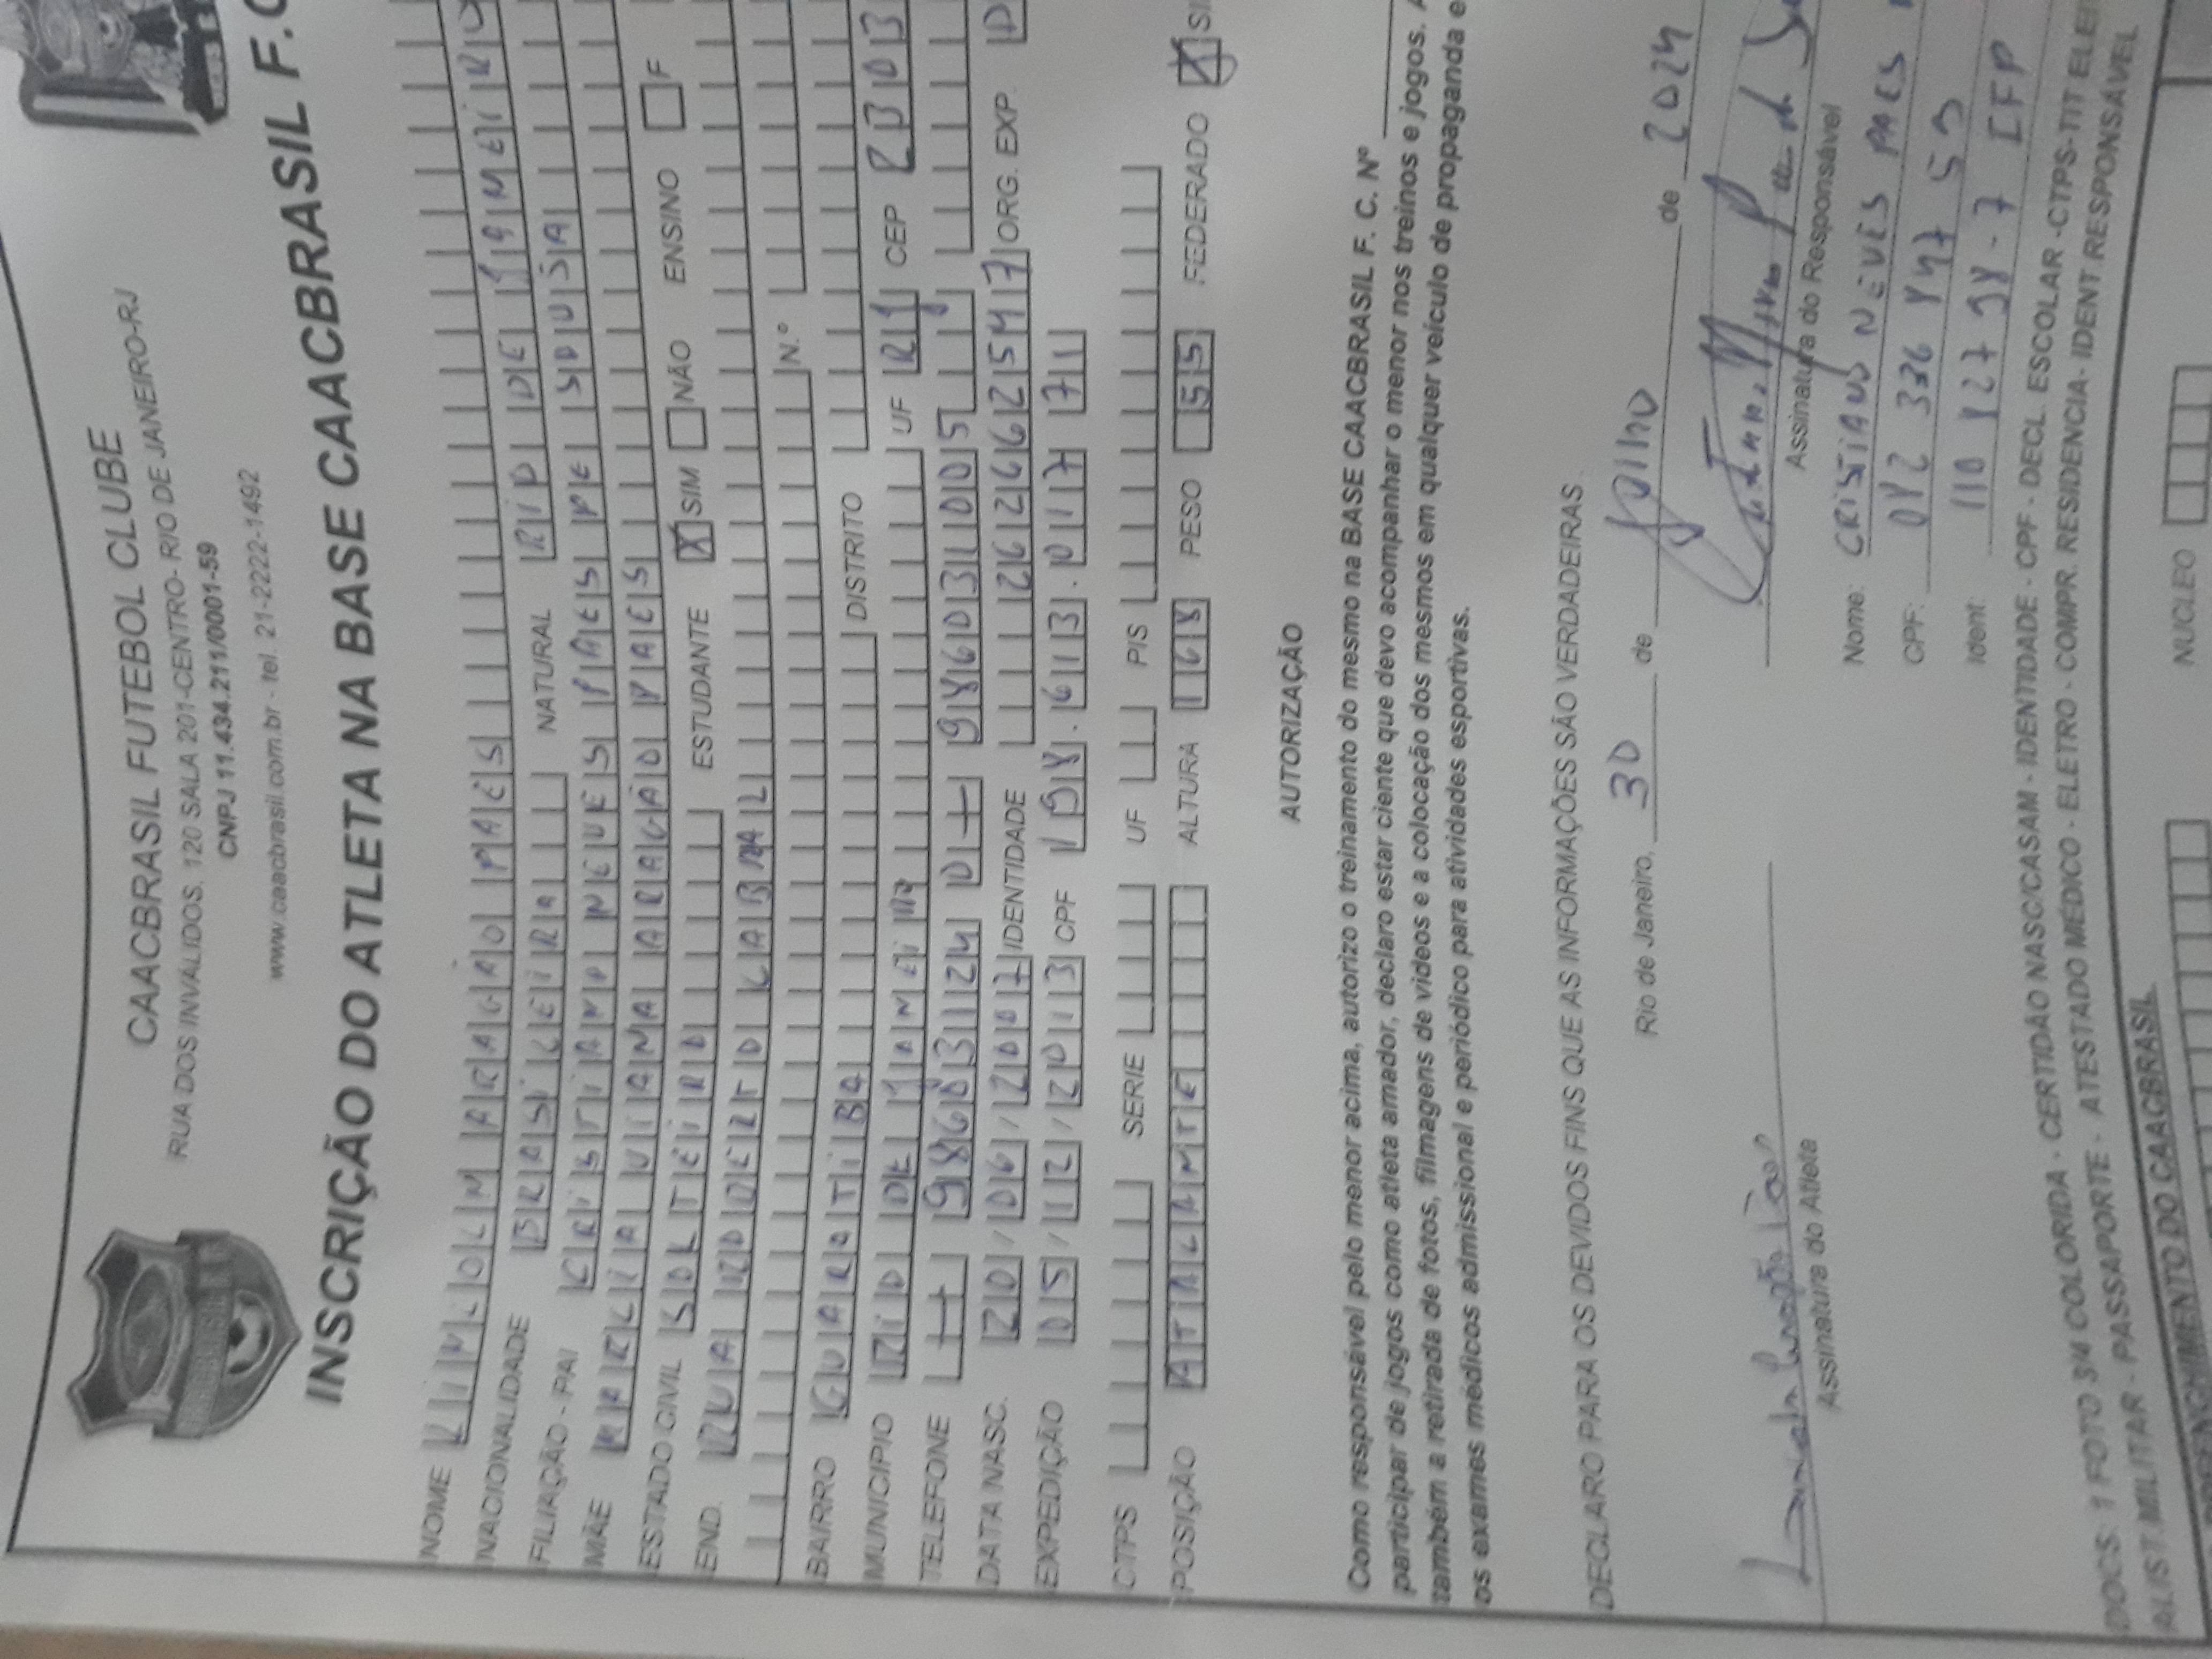 CAACBRASIL FUTEBOL CLUBE
RUA DOS INVÁLIDOS, 120 SALA 201-CENTRO- RIO DE JANEIRO-RJ
CNPJ 11.434.211/0001-59
www.caacbrasil.com.br - tel. 21-2222-1492
INSCRIÇÃO DO ATLETA NA BASE CAACBRASIL F.C
NOME ARAGÃO PAES
NACIONALIDADE BRASILEIRA NATURAL RIO DE JANEIR
FILIAÇÃO - PAI CRISTIANO NEVES PAES DE SOUSA
MÃE MARLIA VIANA ARAGÃO PAES
ESTADO CIVIL SOLTEIRO ESTUDANTE X SIM NÃO ENSINO F
END. RUA CABRAL
N.º
BAIRRO GUARATIBA DISTRITO
MUNICIPIO RIO DE JANEIRO UF RJ CEP
TELEFONE 986031240 986031005
DATA NASC. 20/06/2007 IDENTIDADE ORG. EXP. D
EXPEDIÇÃO 05/12/2013 CPF 198.613.017 71
CTPS SERIE UF PIS
POSIÇÃO ATACANTE ALTURA 168 PESO 55 FEDERADO X SI
AUTORIZAÇÃO
Como responsável pelo menor acima, autorizo o treinamento do mesmo na BASE CAACBRASIL F. C. Nº
participar de jogos como atleta amador, declaro estar ciente que devo acompanhar o menor nos treinos e jogos. A
também a retirada de fotos, filmagens de videos e a colocação dos mesmos em qualquer veículo de propaganda e
os exames médicos admissional e periódico para atividades esportivas.
DECLARO PARA OS DEVIDOS FINS QUE AS INFORMAÇÕES SÃO VERDADEIRAS.
Rio de Janeiro, 30 de Julho de 2024
Assinatura do Atleta
Assinatura do Responsável
Nome: CRISTIANO NEVES PAES
CPF: 042 336 447 59
Ident: 110 427 98-7 IFP
DOCS: 1 FOTO 3/4 COLORIDA - CERTIDÃO NASC/CASAM - IDENTIDADE - CPF - DECL. ESCOLAR -CTPS-TIT ELEI
ALIST.MILITAR - PASSAPORTE - ATESTADO MÉDICO - ELETRO - COMPR. RESIDENCIA- IDENT RESPONSÁVEL
PREENCHIMENTO DO CAACBRASIL
NÚCLEO